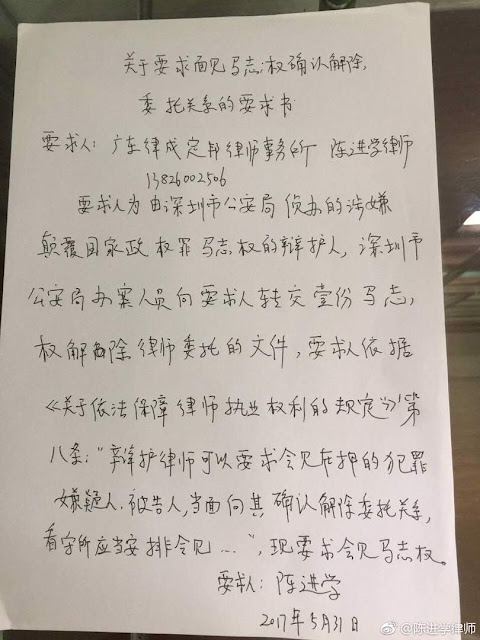 关于要求面见马志权确认解除
委托关系的要求书
要求人：广东律成定邦律师事务所 陈进学律师
13826002506
要求人为由深圳市公安局侦办的涉嫌
颠覆国家政权罪马志权的辩护人，深圳市
公安局办案人员向要求人转交壹份马志
权解除律师委托的文件，要求人依据
《关于依法保障律师执业权利的规定》第
八条：“辩护律师可以要求会见在押的犯罪
嫌疑人、被告人，当面向其确认解除委托关系，
看守所应当安排会见…”，现要求会见马志权。
要求人：陈进学
2017年5月31日
@陈进学律师